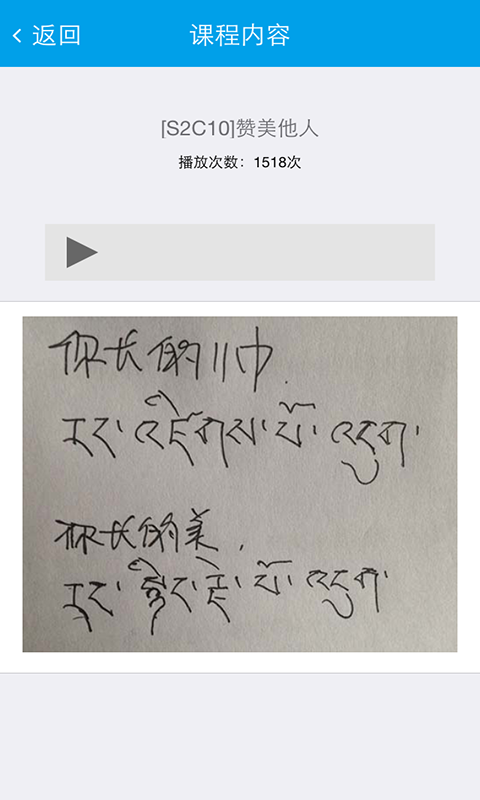 返回
课程内容
[S2C10]赞美他人
播放次数：1518次
你长的帅.
རང་ འཇོགས་པོ་ འདུག་
你长的美.
རང་ སྙིང་རྗེ་ པོ་ འདུག་